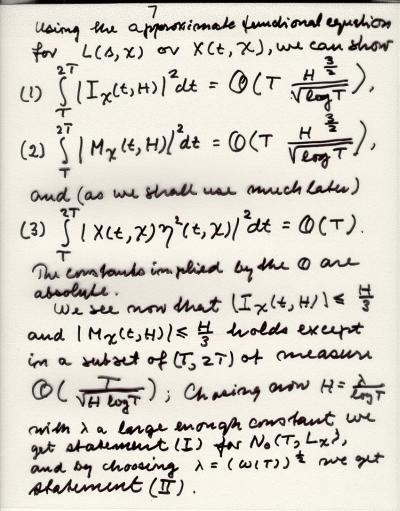 7
Using the approximate functional equation
for L(s,χ) or X(t,χ), we can show
(1) ∫_T^{2T} |I_χ(t,H)|² dt = O(T H^{3/2}/√log T),
(2) ∫_T^{2T} |M_χ(t,H)|² dt = O(T H^{3/2}/√log T),
and (as we shall use much later)
(3) ∫_T^{2T} |X(t,χ)η²(t,χ)|² dt = O(T).
The constants implied by the O are
absolute.
We see now that |I_χ(t,H)| ≤ H/3
and |M_χ(t,H)| ≤ H/3 holds except
in a subset of (T, 2T) of measure
O(T/√(H log T)); Chosing now H = λ/log T
with λ a large enough constant, we
get statement (I) for N₀(T, L_χ),
and by choosing λ = (ω(T))^{1/2} we get
statement (II).